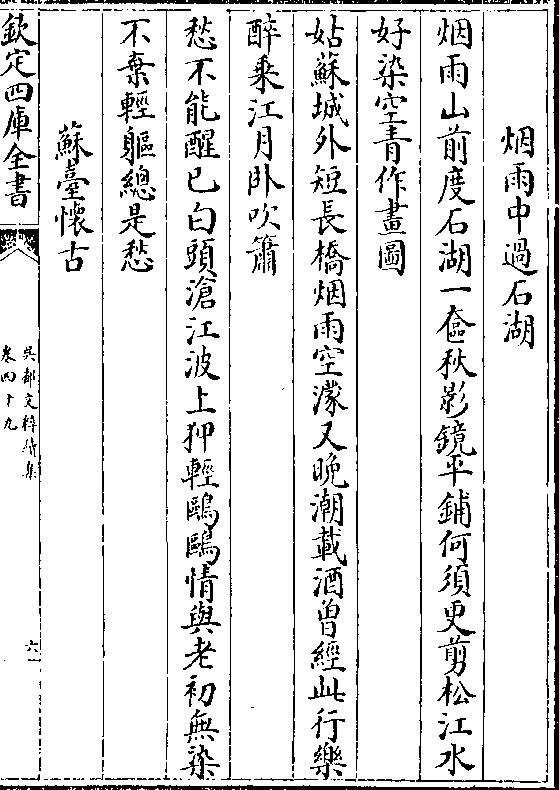 烟雨中過石湖
烟雨山前度石湖一奩秋影鏡平鋪何須更剪松江水
好染空青作畫圖
姑蘇城外短長橋烟雨空濛又晚潮載酒曾經此行樂
醉乘江月卧吹簫
愁不能醒已白頭滄江波上狎輕鷗鷗情與老初無染
不棄輕軀總是愁
蘇臺懷古
欽定四庫全書
吳都文粹續集
卷四十九
六